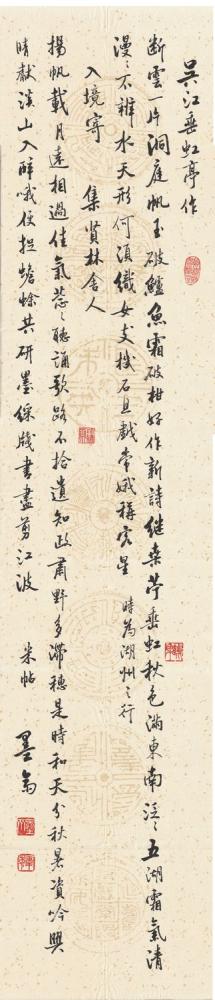 吳江垂虹亭作
斷雲一片洞庭帆玉破鱸魚霜破柑好作新詩繼桑苧垂虹秋色滿東南泛〻五湖霜氣清
漫〻不辨水天形何須織女支機石且戲常娥稱客星 時為湖州之行
入境寄 集賢林舍人
揚帆載月遠相過佳氣蔥〻聽誦歌路不拾遺知政肅野多滯穗是時和天分秋暑資吟興
晴獻溪山入醉哦便捉蟾蜍共研墨綵牋書盡剪江波
米帖 墨翁